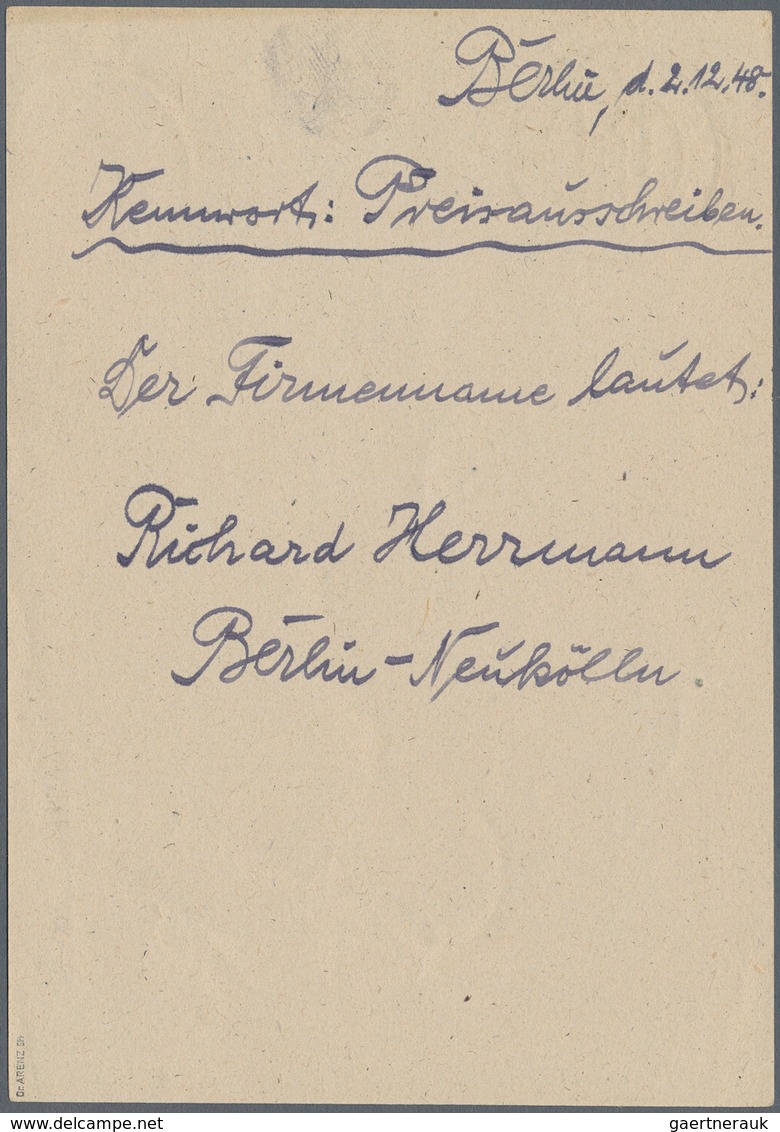 Berlin, d. 2.12.48.
Kennwort: Preisausschreiben.
Der Firmenname lautet:
Richard Herrmann
Berlin-Neukölln.
Dr. ARENZ
www.delcampe.net
gaertnerauk